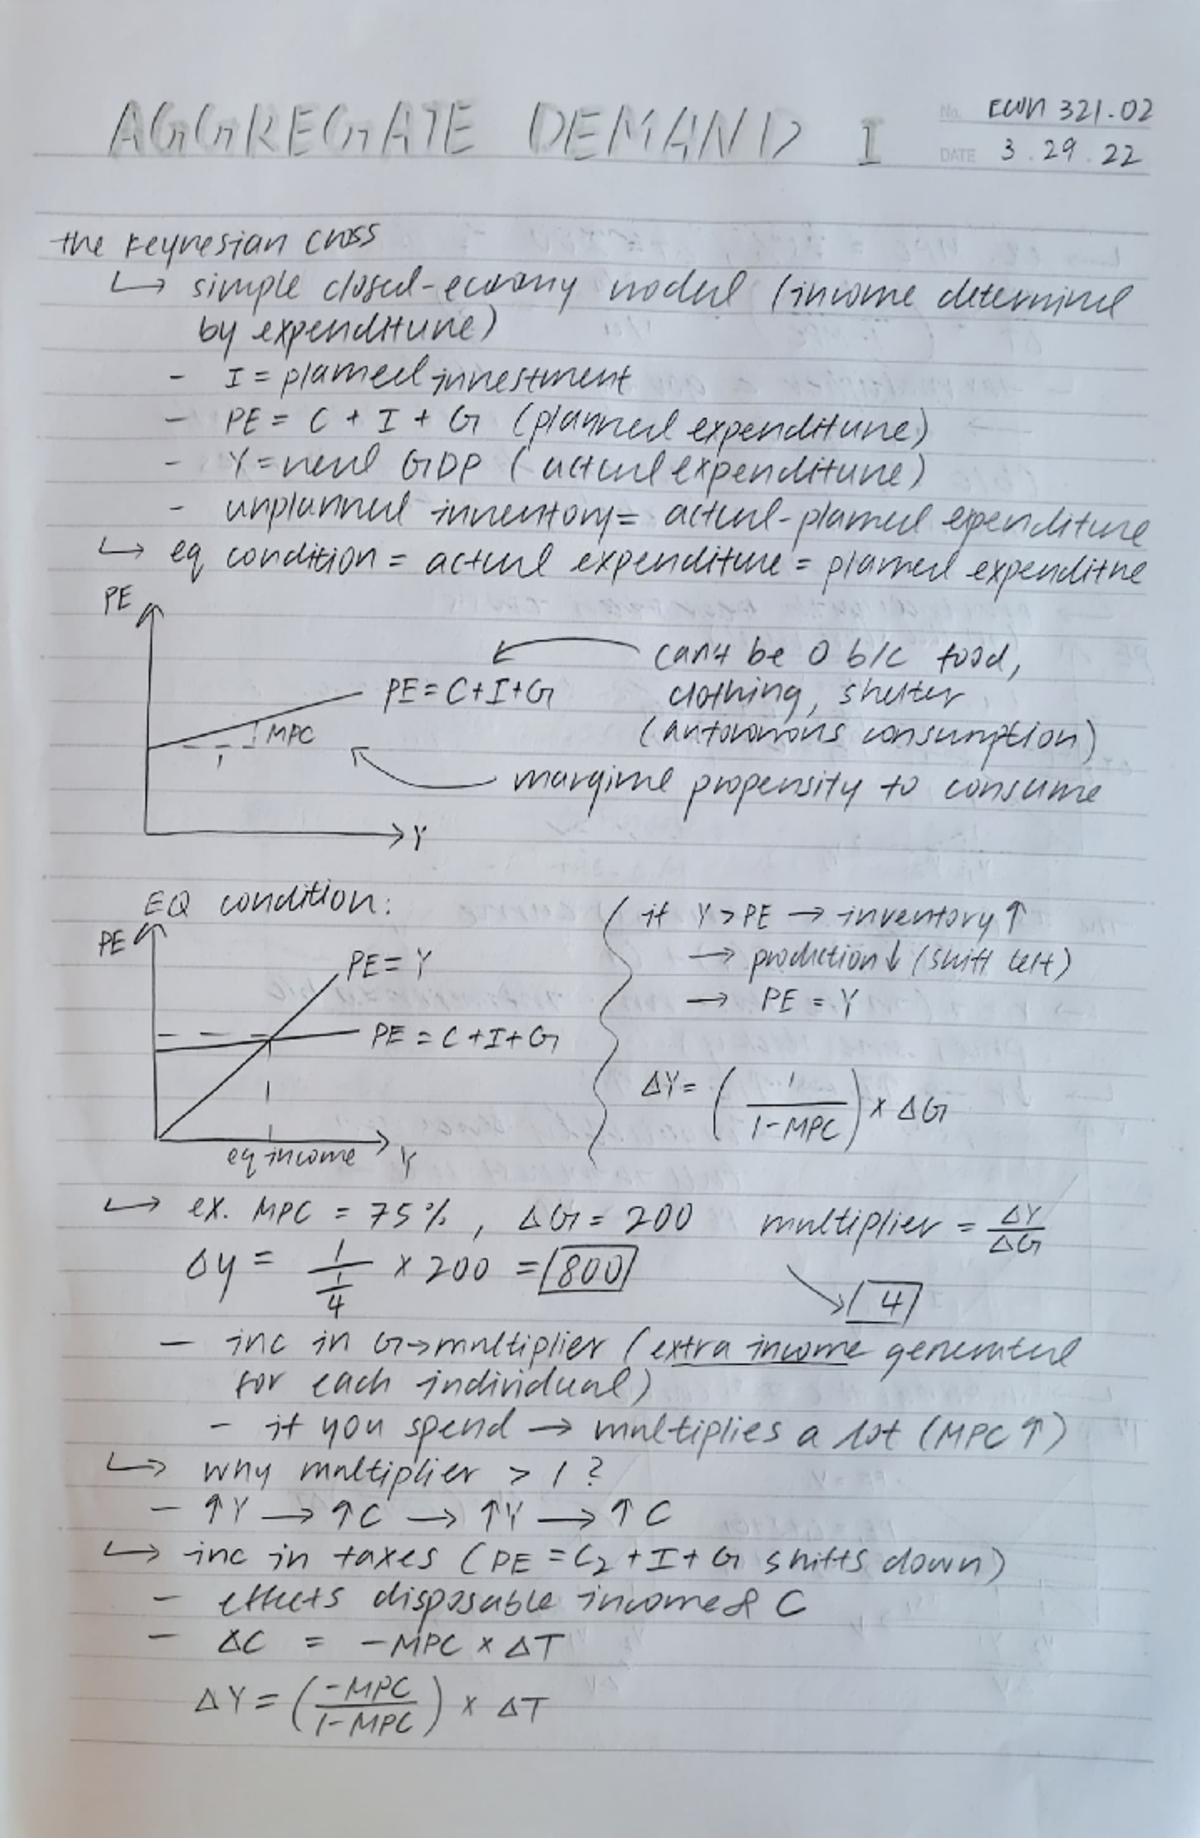 AGGREGATE DEMAND I
No. ECON 321.02
DATE 3.29.22
the Keynesian Cross
↳ simple closed-economy model (income determined
by expenditure)
- I = planned investment
- PE = C + I + G (planned expenditure)
- Y = real GDP (actual expenditure)
- unplanned inventory = actual-planned expenditure
↳ eq condition = actual expenditure = planned expenditure
PE
PE = C+I+G
MPC
1
Y
can't be 0 b/c food,
clothing, shelter
(autonomous consumption)
marginal propensity to consume
EQ condition:
PE
PE = Y
PE = C+I+G
eq income
Y
if Y > PE → inventory ↑
→ production ↓ (shift left)
→ PE = Y
ΔY = (1/(1-MPC)) × ΔG
↳ ex. MPC = 75%, ΔG = 200
multiplier = ΔY/ΔG
Δy = 1/(1/4) × 200 = 800
4
- inc in G → multiplier (extra income generated
for each individual)
- if you spend → multiplies a lot (MPC ↑)
↳ why multiplier > 1?
- ↑Y → ↑C → ↑Y → ↑C
↳ inc in taxes (PE = C₂+I+G shifts down)
- effects disposable income & C
- ΔC = -MPC × ΔT
ΔY = (-MPC/(1-MPC)) × ΔT